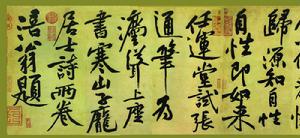 歸源知自性
自性即如來
任運堂試張
通筆為
灋聳上座
書寒山子龐
居士詩兩卷
涪翁題